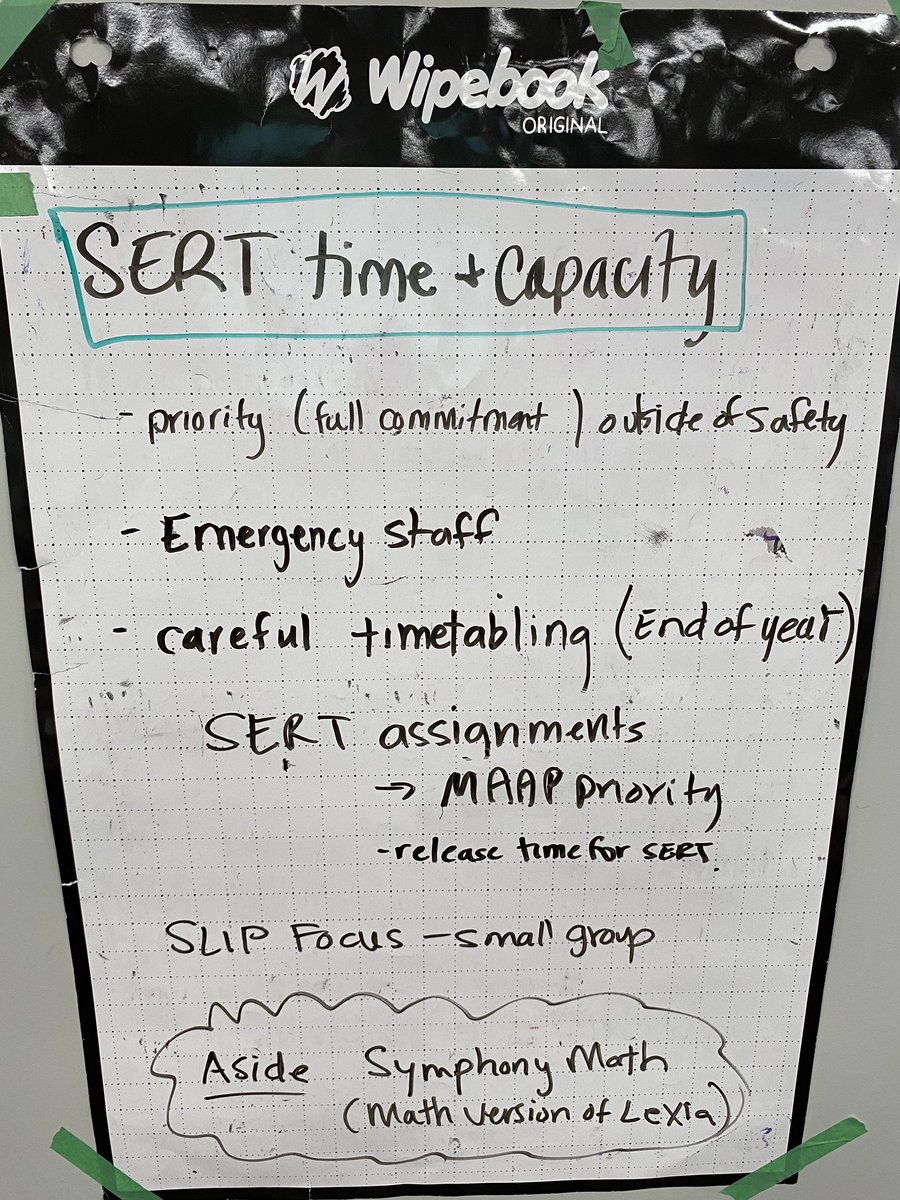 Wipebook
ORIGINAL
SERT time + capacity
- priority (full commitment ) outside of safety
- Emergency staff
- careful timetabling (End of year)
SERT assignments
→ MAAP priority
- release time for SERT
SLIP Focus - small group
Aside Symphony Math
(Math version of Lexia)
3